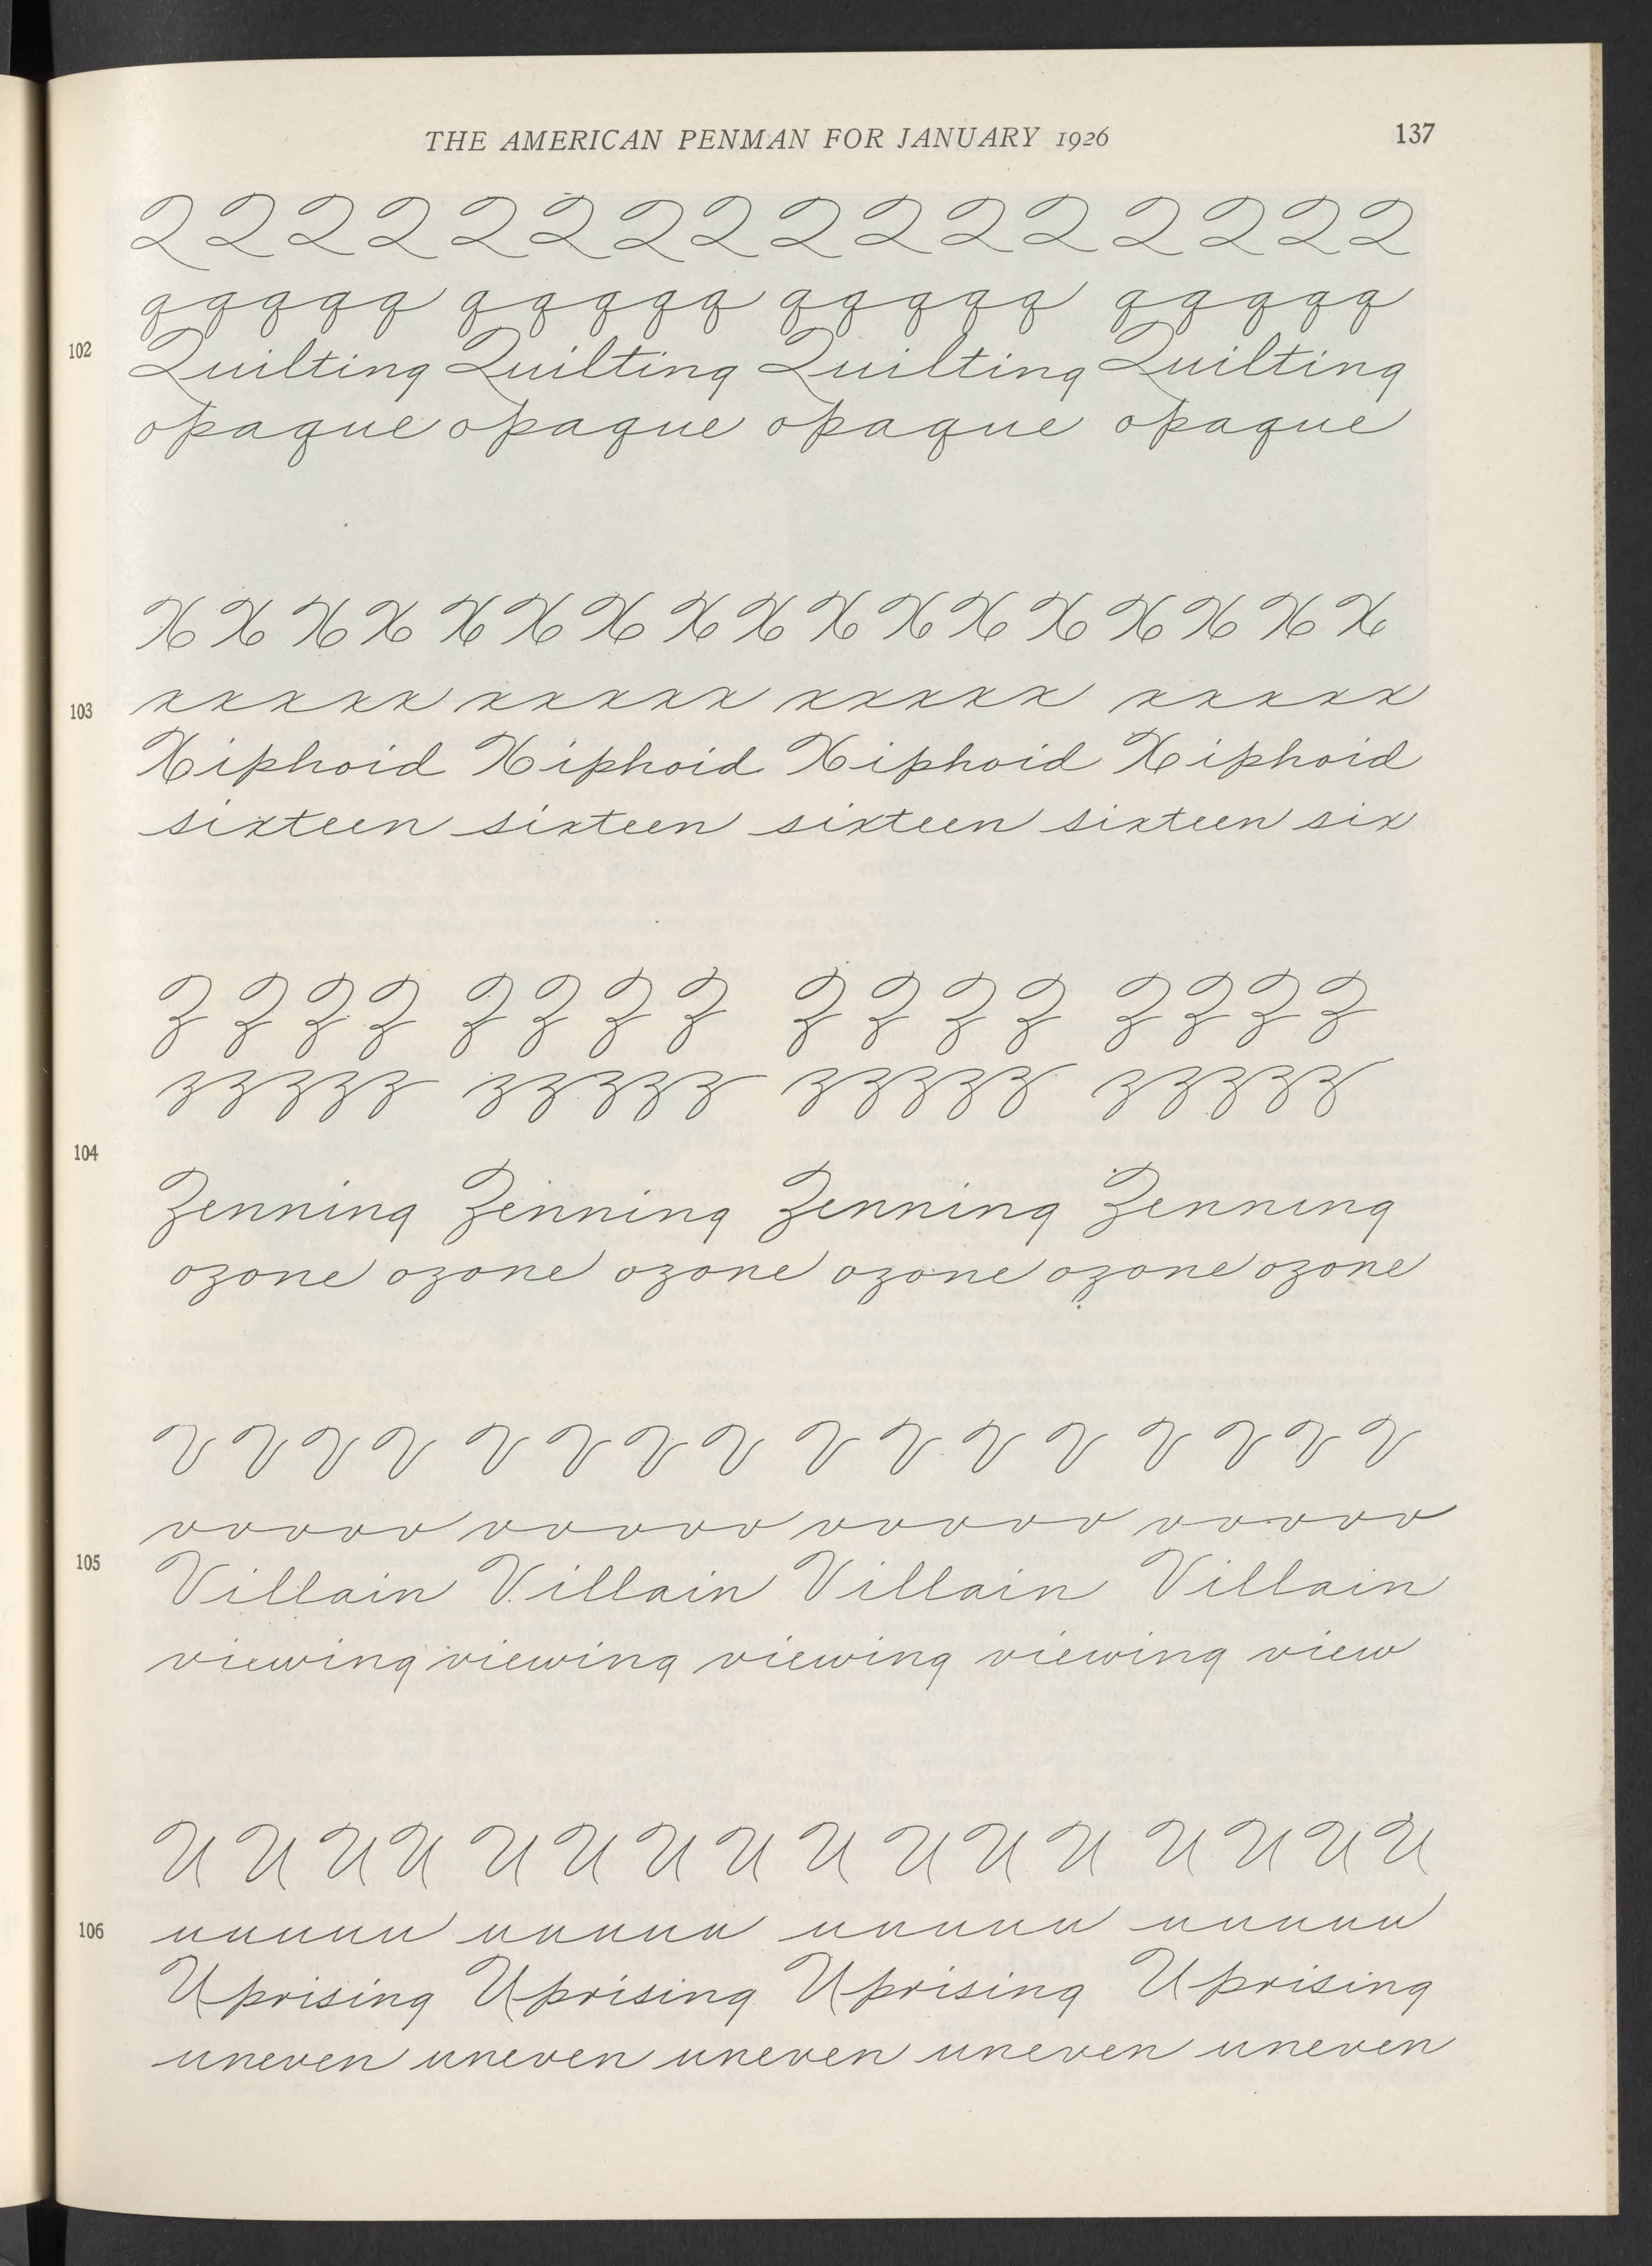 THE AMERICAN PENMAN FOR JANUARY 1926 137
Q Q Q Q Q Q Q Q Q Q Q Q Q Q Q Q
qqqqq qqqqq qqqqq qqqqq
102 Quilting Quilting Quilting Quilting
opaque opaque opaque opaque
X X X X X X X X X X X X X X X X X
103 xxxxx xxxxx xxxxx xxxxx
Xiphoid Xiphoid Xiphoid Xiphoid
sixteen sixteen sixteen sixteen six
Z Z Z Z Z Z Z Z Z Z Z Z Z Z Z Z
zzzzz zzzzz zzzzz zzzzz
104
Zenning Zenning Zenning Zenning
ozone ozone ozone ozone ozone ozone
V V V V V V V V V V V V V V V V
vvvvv vvvvv vvvvv vvvvv
105 Villain Villain Villain Villain
viewing viewing viewing viewing view
U U U U U U U U U U U U U U U U
106 uuuuu uuuuu uuuuu uuuuu
Uprising Uprising Uprising Uprising
uneven uneven uneven uneven uneven